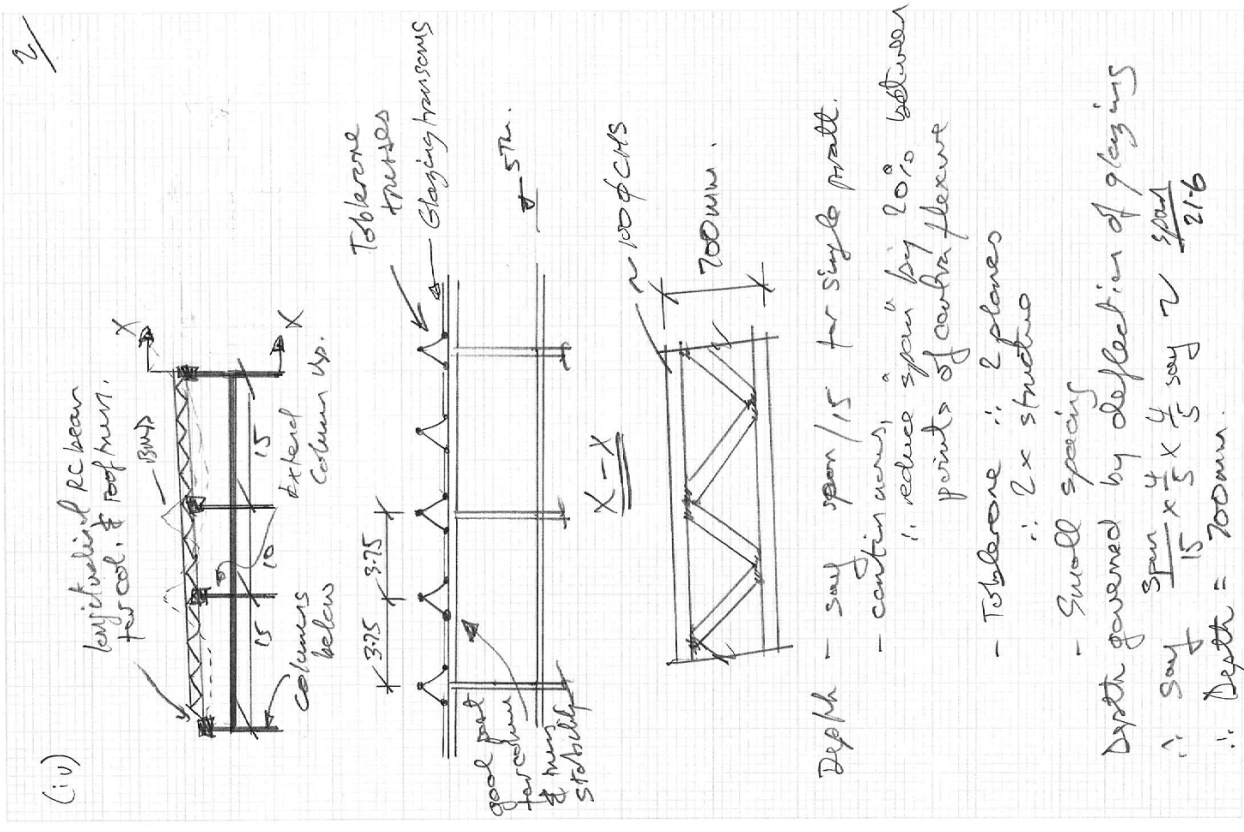 2/
(iv)
longitudinal RC beam
for col. & roof truss.
Bmd
X
X
15
10
15
columns
below
Extend
column up.
Toblerone
trusses
Glazing transoms
3.75
3.75
5th.
good post
for column
& truss
stability
X - X
~100φ CHS
700mm.
Depth - say span/15 for single pratt.
- continuous,
∴ reduce "span" by 20% between
points of contra flexure
- Toblerone ∴ 2 planes
∴ 2x structure
- Small spacing
Depth governed by deflection of glazing
∴ say span/15 x 4/5 x 4/5 say ~ span/21.6
∴ Depth = 700mm.